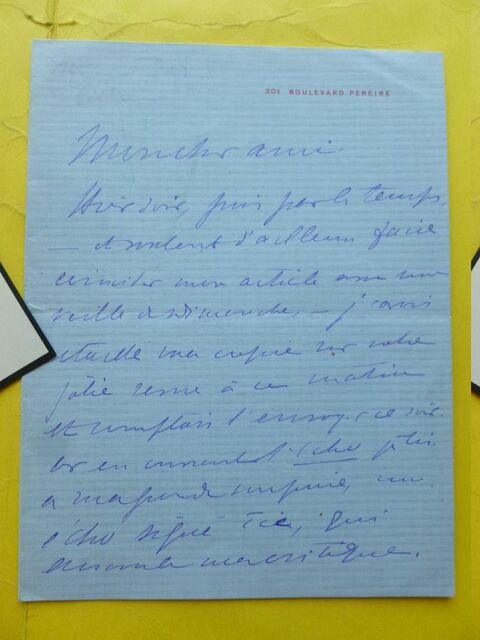 201 BOULEVARD PEREIRE
Mon cher ami
Hier soir, pris par le temps,
— et voulant d'ailleurs faire
coïncider mon article avec une
veille de Dimanche, — j'avais
retardé ma copie sur votre
jolie revue à ce matin
et comptais l'envoyer ce soir.
Or en ouvrant l'Echo j'ai,
à ma grande surprise, un
écho signé Tic, qui
ma critique.